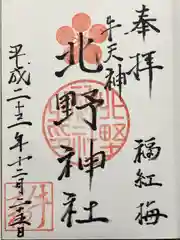 奉拝
福紅梅
牛天神
北野神社
平成二十二年十二月二十五日